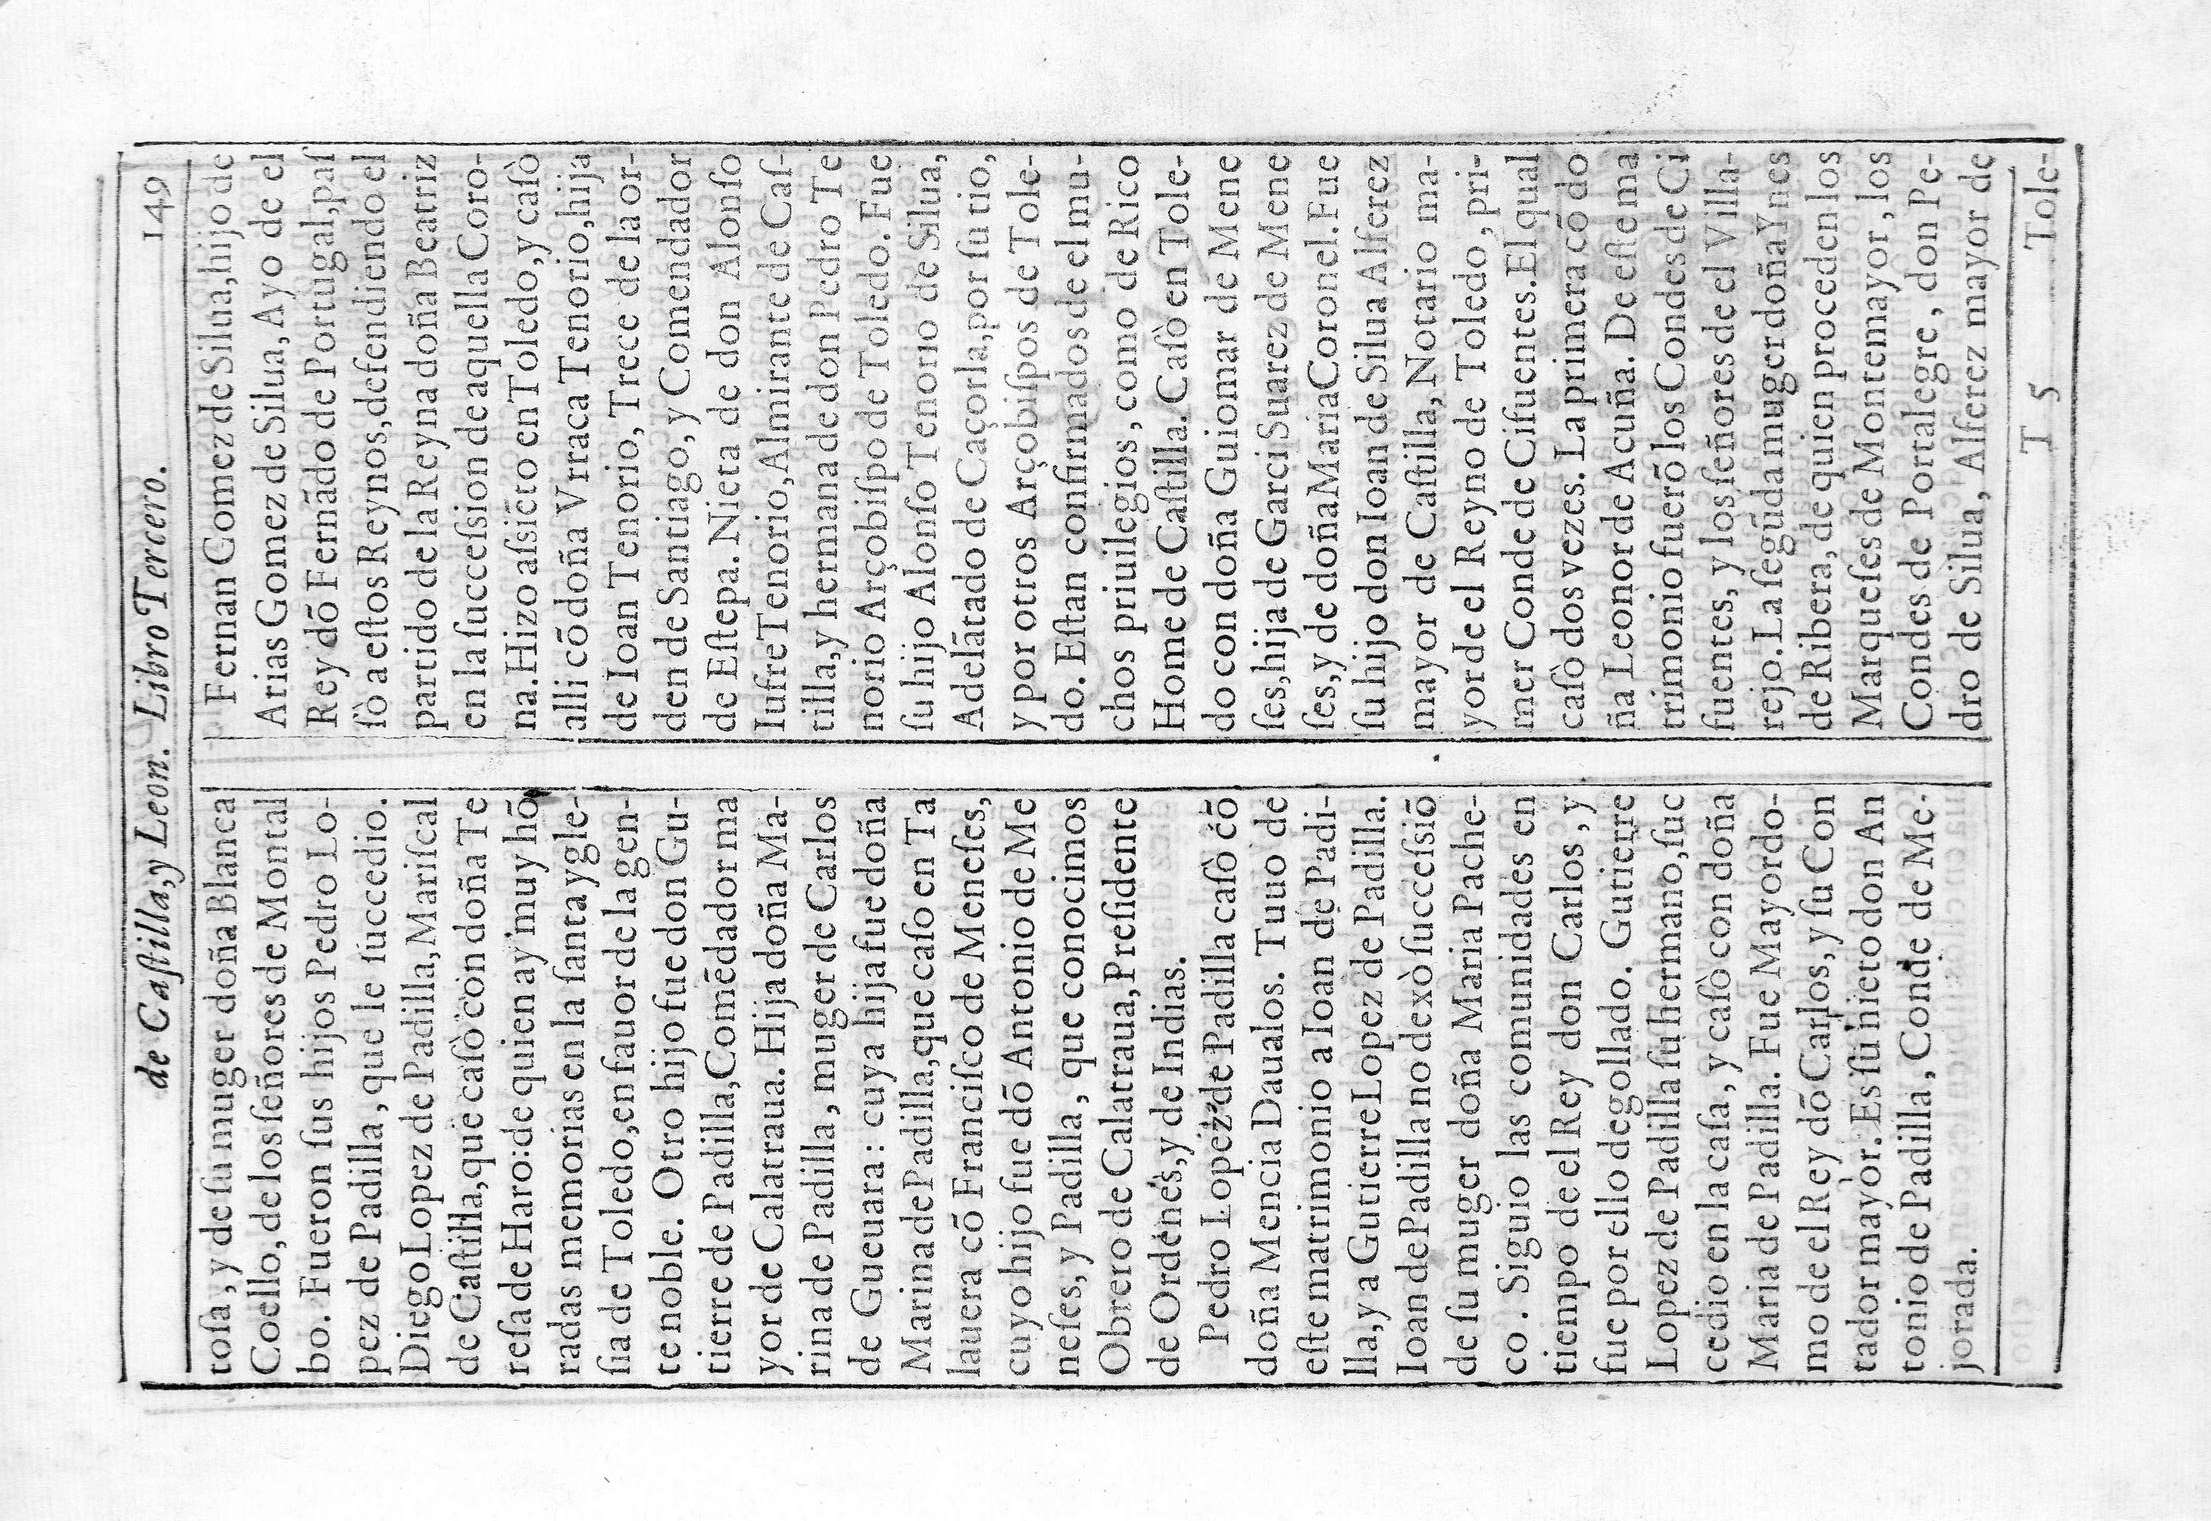 de Caſtilla, y Leon. Libro Tercero. 149
toſa, y de ſu muger doña Blanca
Coello, de los ſeñores de Montal
bo. Fueron ſus hijos Pedro Lo-
pez de Padilla, que le ſuccedio.
Diego Lopez de Padilla, Mariſcal
de Caſtilla, que caſò con doña Te
reſa de Haro: de quien ay muy hõ
radas memorias en la ſanta ygle-
ſia de Toledo, en fauor de la gen-
te noble. Otro hijo fue don Gu-
tierre de Padilla, Comẽdador ma
yor de Calatraua. Hija doña Ma-
rina de Padilla, muger de Carlos
de Gueuara: cuya hija fue doña
Marina de Padilla, que caſo en Ta
lauera cõ Franciſco de Meneſes,
cuyo hijo fue dõ Antonio de Me
neſes, y Padilla, que conocimos
Obrero de Calatraua, Preſidente
de Ordenes, y de Indias.
Pedro Lopez de Padilla caſò cõ
doña Mencia Daualos. Tuuo de
eſte matrimonio a Ioan de Padi-
lla, y a Gutierre Lopez de Padilla.
Ioan de Padilla no dexò ſucceſsiõ
de ſu muger doña Maria Pache-
co. Siguio las comunidades en
tiempo de el Rey don Carlos, y
fue por ello degollado. Gutierre
Lopez de Padilla ſu hermano, ſuc
cedio en la caſa, y caſò con doña
Maria de Padilla. Fue Mayordo-
mo de el Rey dõ Carlos, y ſu Con
tador mayor. Es ſu nieto don An
tonio de Padilla, Conde de Me-
jorada.
Fernan Gomez de Silua, hijo de
Arias Gomez de Silua, Ayo de el
Rey dõ Fernãdo de Portugal, paſ
ſò a eſtos Reynos, defendiendo el
partido de la Reyna doña Beatriz
en la ſucceſsion de aquella Coro-
na. Hizo aſsiẽto en Toledo, y caſò
alli cõ doña Vrraca Tenorio, hija
de Ioan Tenorio, Trece de la or-
den de Santiago, y Comendador
de Eſtepa. Nieta de don Alonſo
Iufre Tenorio, Almirante de Caſ-
tilla, y hermana de don Pedro Te
norio Arçobiſpo de Toledo. Fue
ſu hijo Alonſo Tenorio de Silua,
Adelãtado de Caçorla, por ſu tio,
y por otros Arçobiſpos de Tole-
do. Eſtan confirmados de el mu-
chos priuilegios, como de Rico
Home de Caſtilla. Caſò en Tole-
do con doña Guiomar de Mene
ſes, hija de Garci Suarez de Mene
ſes, y de doña Maria Coronel. Fue
ſu hijo don Ioan de Silua Alferez
mayor de Caſtilla, Notario ma-
yor de el Reyno de Toledo, pri-
mer Conde de Cifuentes. El qual
caſò dos vezes. La primera cõ do
ña Leonor de Acuña. De eſte ma
trimonio fuerõ los Condes de Ci
fuentes, y los ſeñores de el Villa-
rejo. La ſegũda muger doña Ynes
de Ribera, de quien proceden los
Marqueſes de Montemayor, los
Condes de Portalegre, don Pe-
dro de Silua, Alferez mayor de
T 5 Tole-